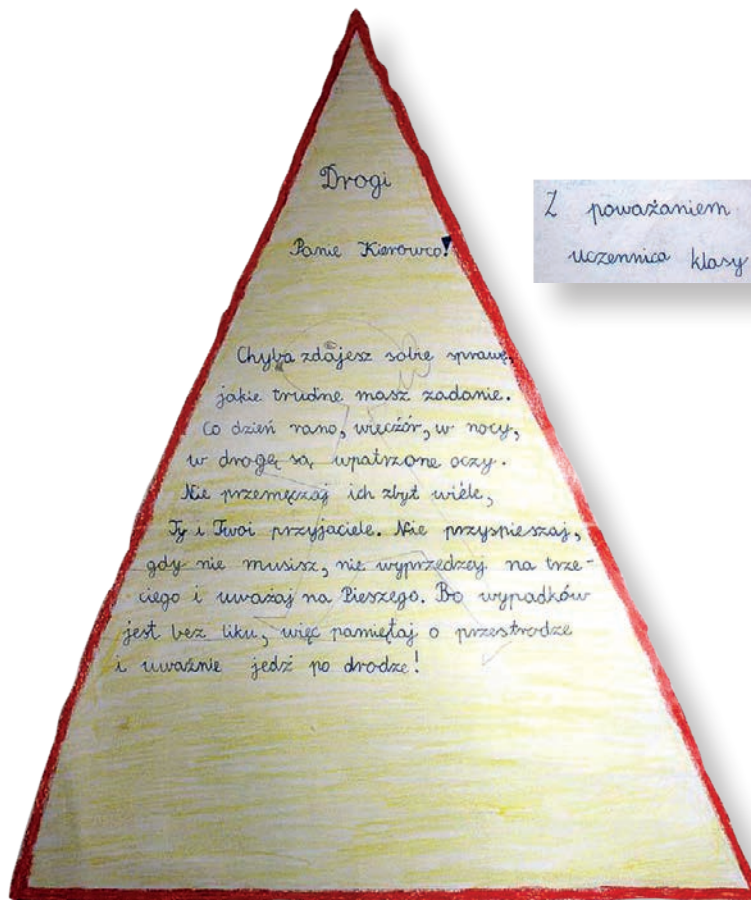 Drogi
Panie Kierowco!
Chyba zdajesz sobie sprawę,
jakie trudne masz zadanie.
Co dzień rano, wieczór, w nocy,
w drogę są wpatrzone oczy.
Nie przemęczaj ich zbyt wiele,
Ty i Twoi przyjaciele. Nie przyspieszaj,
gdy nie musisz, nie wyprzedzaj na trze-
ciego i uważaj na Pieszego. Bo wypadków
jest bez liku, więc pamiętaj o przestrodze
i uważnie jedź po drodze!
Z poważaniem
uczennica klasy